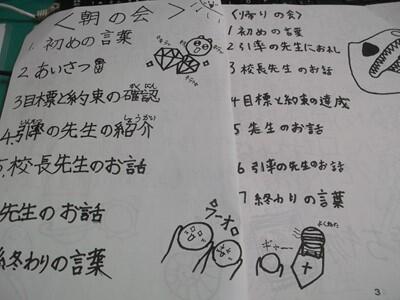 ＜朝の会＞
1. 初めの言葉
2. あいさつ
3 目標と約束の確認
かくにん
4. 引率の先生の紹介
いんそつ
しょうかい
5. 校長先生のお話
先生のお話
終わりの言葉
＜帰りの会＞
1 初めの言葉
2 引率の先生にお礼
3 校長先生のお話
4 目標と約束の達成
5 先生のお話
6 引率の先生のお話
7 終わりの言葉
ギャー
3